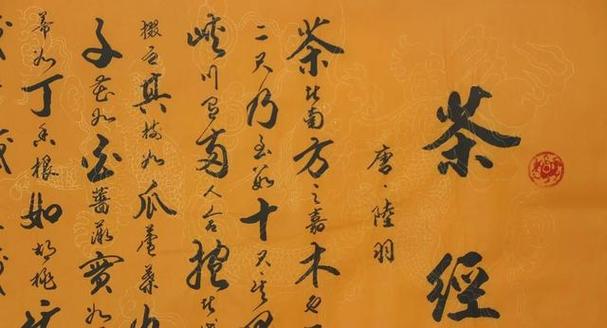 茶經
唐·陸羽
茶者南方之嘉木也
二尺乃至數十尺其
峽川有兩人合抱者伐
掇之其樹如瓜蘆葉
子花如白薔薇實如
蒂如丁香根如胡桃